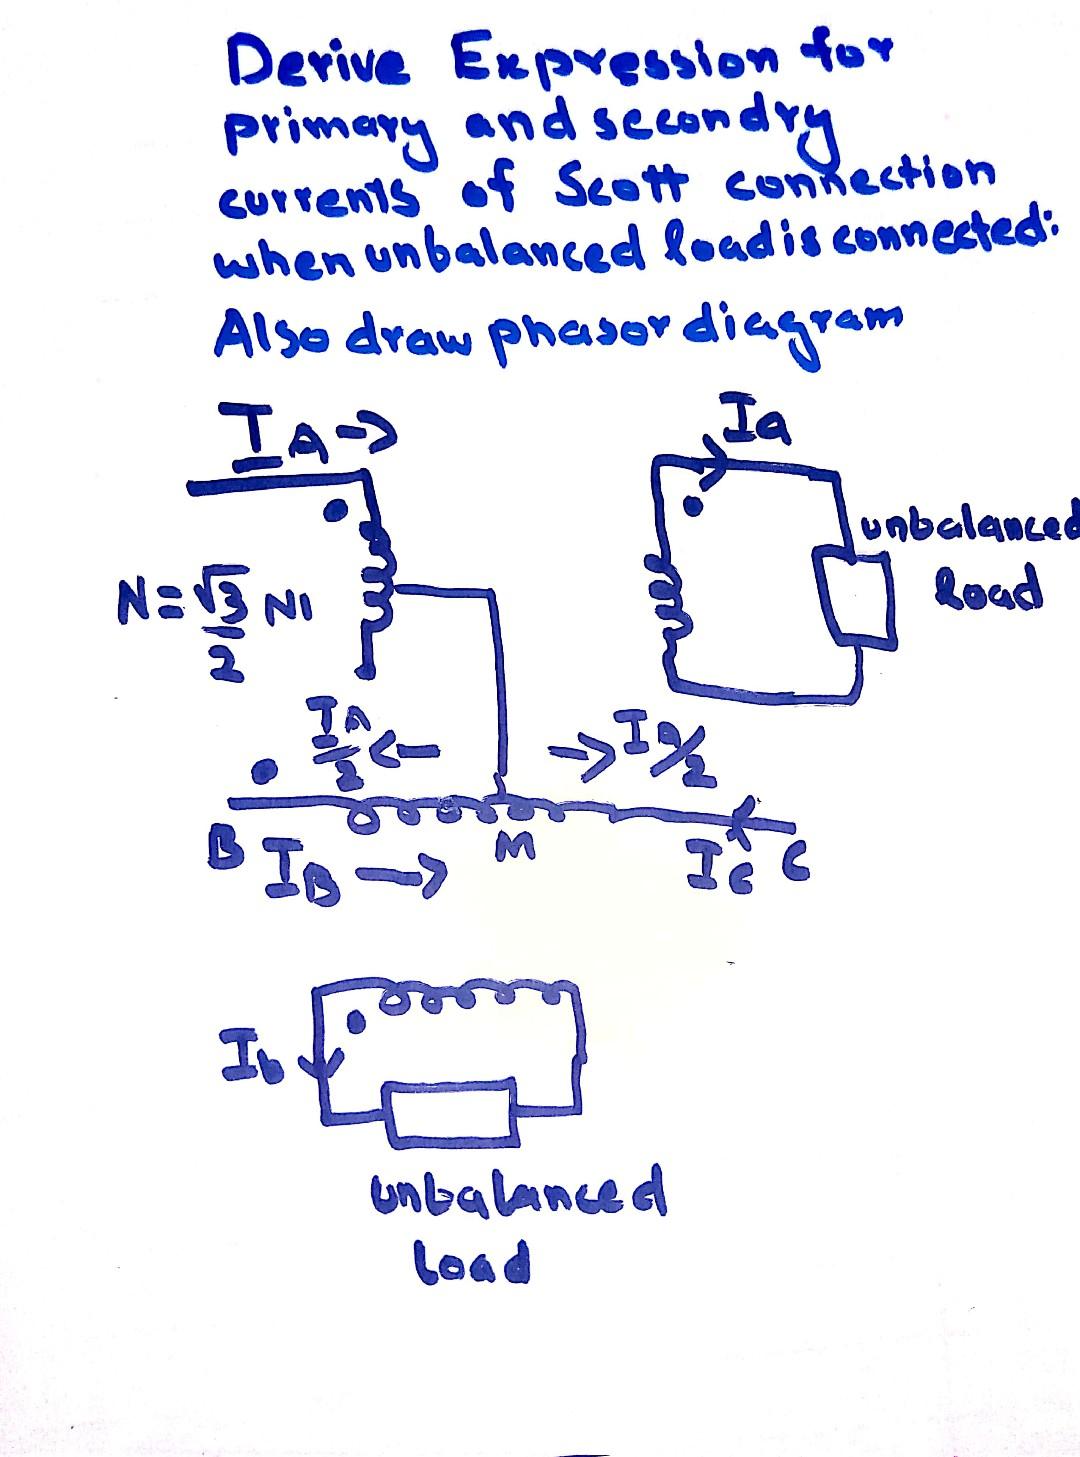 Derive Expression for
primary and secondry
currents of Scott connection
when unbalanced load is connected.
Also draw phasor diagram
IA→
Ia
unbalanced
load
N=√3/2 N1
IA/2 ←
→ IA/2
B
M
C
IB →
Ic
Ib
unbalanced
load